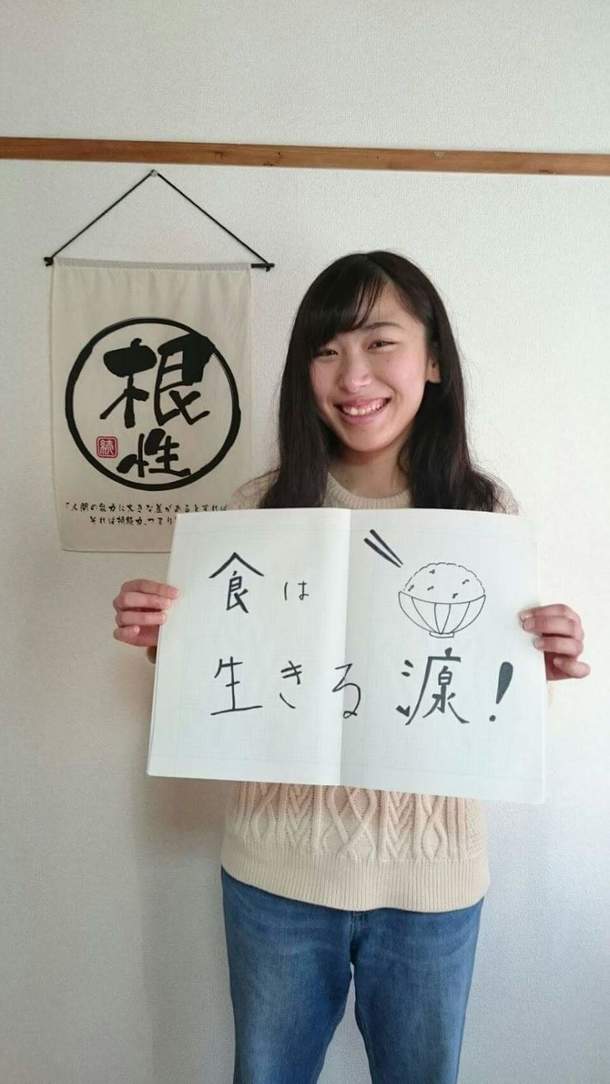 根
性
「人間の能力に大きな差があるとすれば
それは持続力
食は
生きる源!